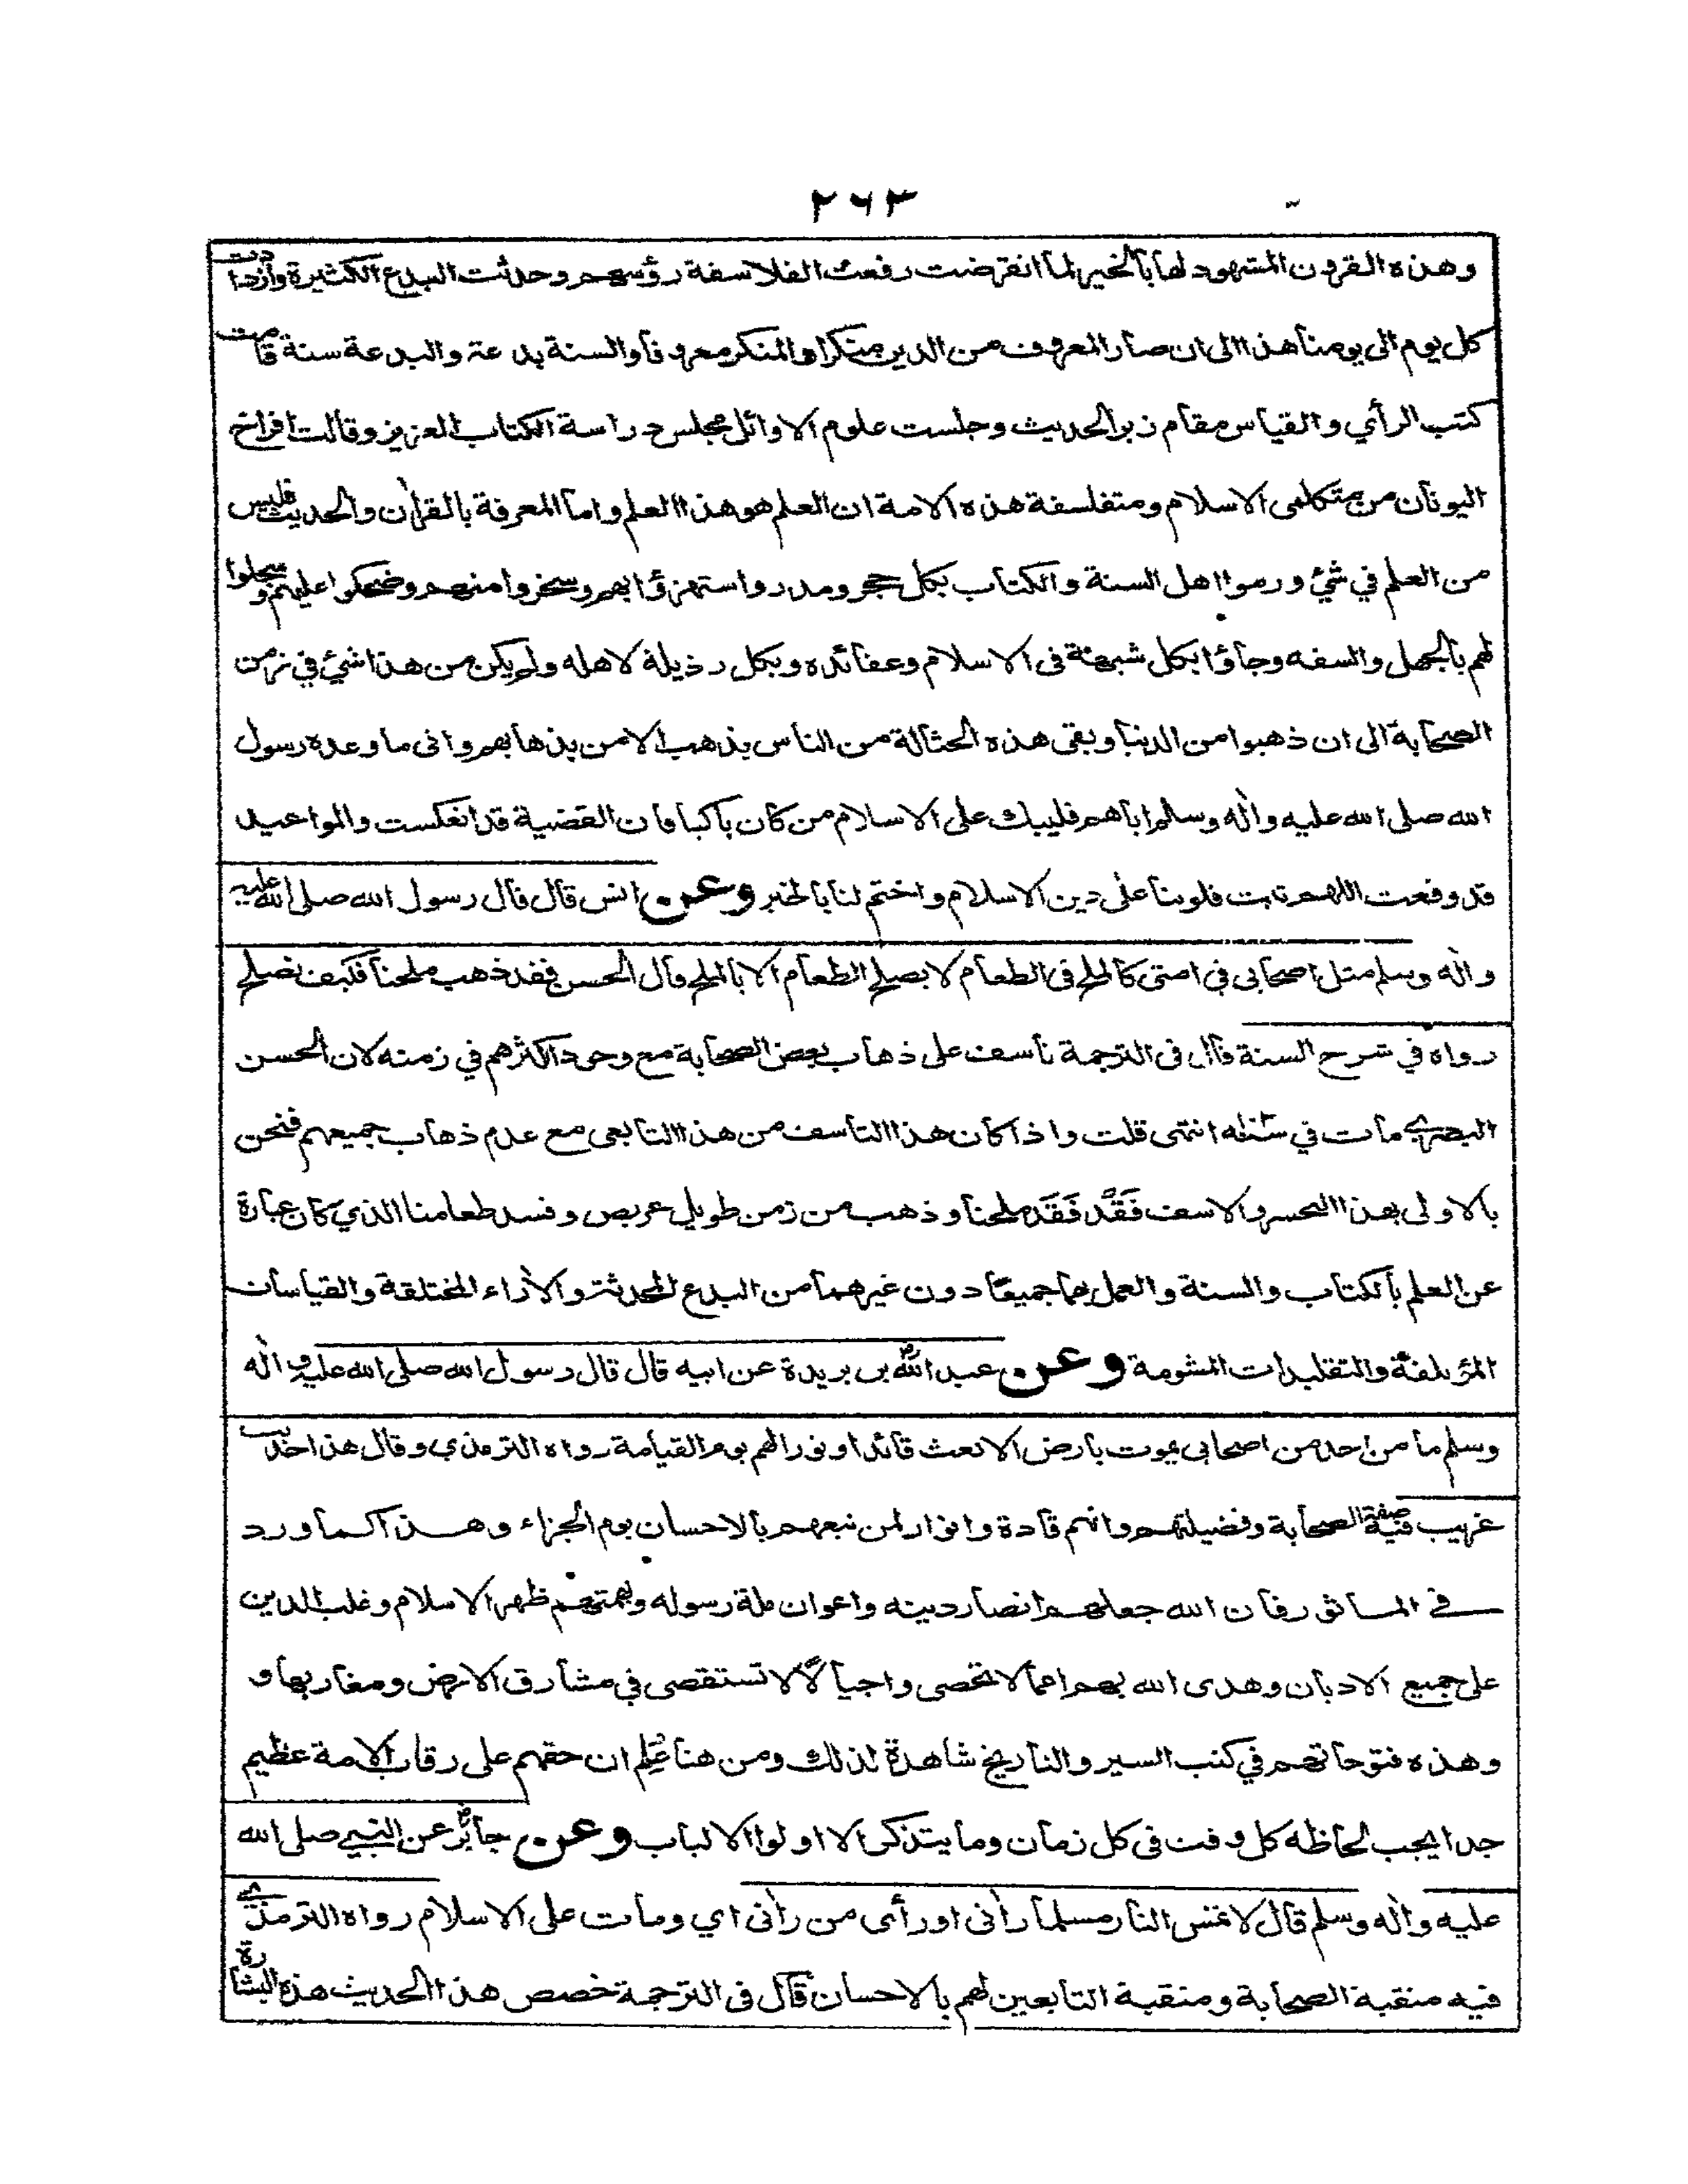 ٢٦٣
وهذه القرون المشهود لها بالخير لما انقرضت رفعت الفلاسفة رؤسهم وحدثت البدع الكثيرة وازدادت
كل يوم الى يومنا هذا الى ان صار المعروف من الدين منكرا والمنكر معروفا والسنة بدعة والبدعة سنة قامت
كتب الرأي والقياس مقام زبر الحديث وجلست علوم الاوائل مجلس دراسة الكتاب العزيز وقالت افراخ
اليونان من متكلمى الاسلام ومتفلسفة هذه الامة ان العلم هو هذا العلم واما المعرفة بالقرآن والحديث فليس
من العلم في شئ ورموا اهل السنة والكتاب بكل حجر ومدر واستهزؤا بهم وسخروا منهم وضحكوا عليهم وسجلوا
لهم بالجهل والسفه وجاؤا بكل شبهة فى الاسلام وعقائده وبكل رذيلة لاهله ولم يكن من هذا شئ في زمن
الصحابة الى ان ذهبوا من الدنيا وبقى هذه الحثالة من الناس يذهب الامن بذهابهم واتى ما وعده رسول
الله صلى الله عليه واٰله وسلم اياهم فليبك على الاسلام من كان باكيا فان القضية قد انعكست والمواعيد
قد وقعت اللهم ثبت قلوبنا على دين الاسلام واختم لنا بالخير وعن انس قال قال رسول الله صلى الله عليه
واٰله وسلم مثل اصحابى في امتى كالملح فى الطعام لا يصلح الطعام الا بالملح قال الحسن فقد ذهب ملحنا فكيف نصلح
رواه في شرح السنة قال فى الترجمة تأسف على ذهاب بعض الصحابة مع وجود اكثرهم في زمنه لان الحسن
البصرے مات في سنة انتهى قلت واذا كان هذا التاسف من هذا التابعى مع عدم ذهاب جميعهم فنحن
بالاولى بهذا التحسر والاسف فَقَدْ فَقَدَ ملحنا وذهب من زمن طويل عريض وفسد طعامنا الذي كان عبارة
عن العلم بالكتاب والسنة والعمل بهما جميعًا دون غيرهما من البدع المحدثة والاٰراء المختلقة والقياسات
المؤتلفة والتقليدات المشومة وعن عبد الله بن بريدة عن ابيه قال قال رسول الله صلى الله عليه واٰله
وسلم ما من احد من اصحابى يموت بارض الا بعث قائدا ونورا لهم يوم القيامة رواه الترمذي وقال هذا حديث
غريب فيه صفة الصحابة وفضيلتهم وانهم قادة وانوار لمن تبعهم بالاحسان يوم الجزاء وهذا كما ورد
في السابق فان الله جعلهم انصار دينه واعوان ملة رسوله وبهمتهم ظهر الاسلام وغلب الدين
على جميع الاديان وهدى الله بهم امما لا تحصى واجيالًا لا تستقصى في مشارق الارض ومغاربها و
وهذه فتوحاتهم في كتب السير والتاريخ شاهدة لذلك ومن هنا عُلِم ان حقهم على رقاب الامة عظيم
جدا يجب لحاظه كل وقت فى كل زمان وما يتذكر الا اولوا الالباب وعن جابر عن النبي صلى الله
عليه واٰله وسلم قال لا تمس النار مسلما راٰنى او رأى من راٰنى اي ومات على الاسلام رواه الترمذے
فيه منقبة الصحابة ومنقبة التابعين لهم بالاحسان قال فى الترجمة خصص هذا الحديث هذه البشارة